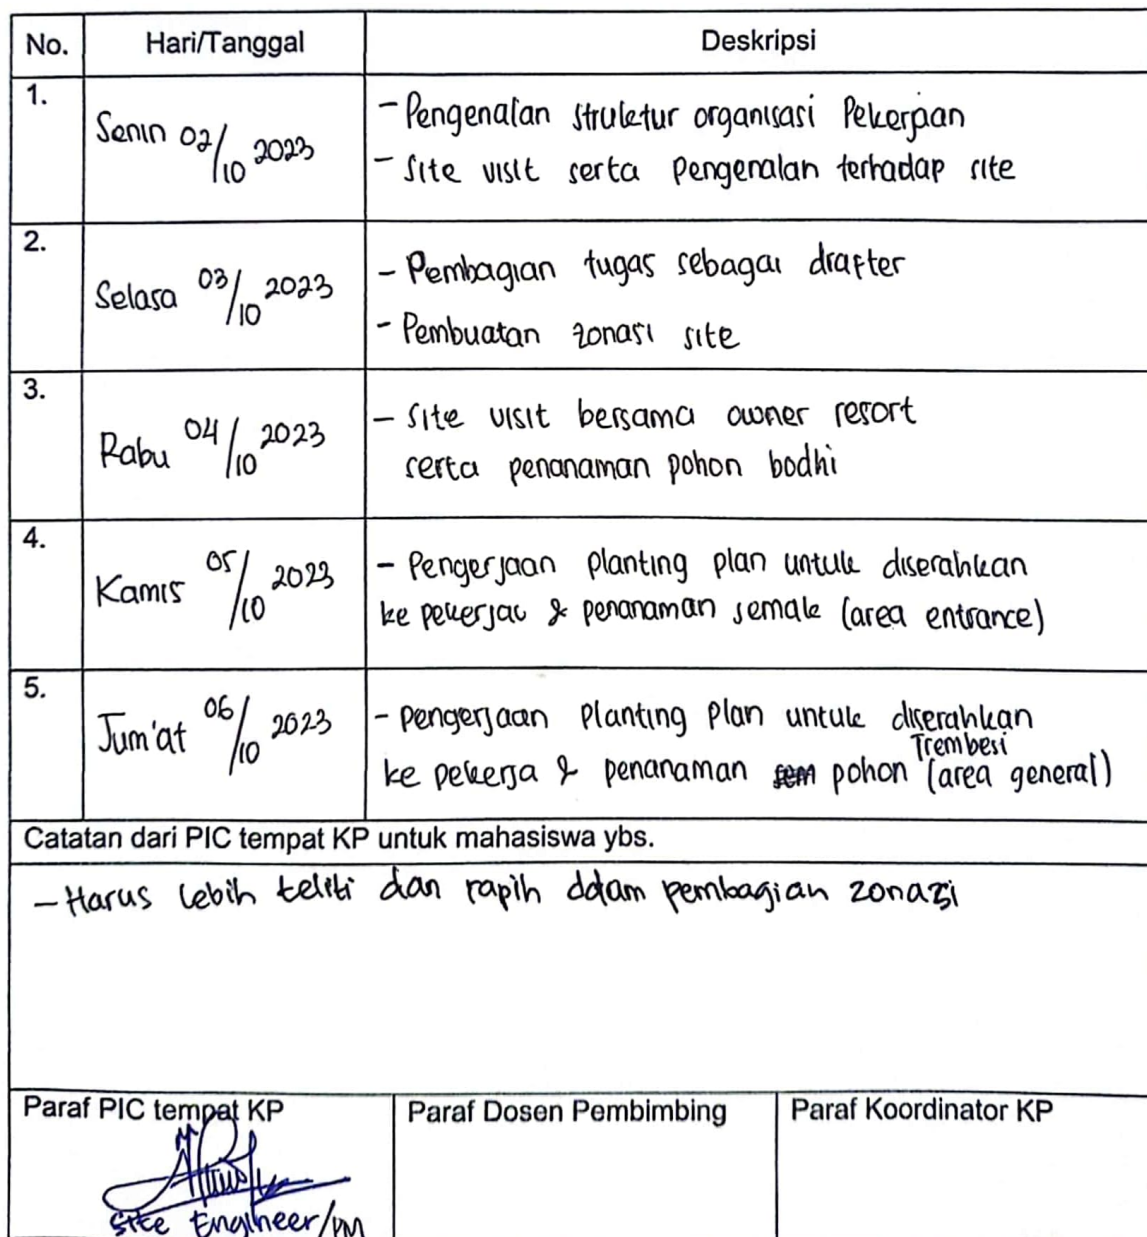 No. Hari/Tanggal Deskripsi
1. Senin 02/10 2023
- Pengenalan struktur organisasi Pekerjaan
- Site visit serta Pengenalan terhadap site
2. Selasa 03/10 2023
- Pembagian tugas sebagai drafter
- Pembuatan zonasi site
3. Rabu 04/10 2023
- Site visit bersama owner resort
serta penanaman pohon bodhi
4. Kamis 05/10 2023
- Pengerjaan planting plan untuk diserahkan
ke pekerja & penanaman semak (area entrance)
5. Jum'at 06/10 2023
- pengerjaan Planting Plan untuk diserahkan
ke pekerja & penanaman sem pohon Trembesi (area general)
Catatan dari PIC tempat KP untuk mahasiswa ybs.
- Harus lebih teliti dan rapih dalam pembagian zonasi
Paraf PIC tempat KP Paraf Dosen Pembimbing Paraf Koordinator KP
Site Engineer/PM